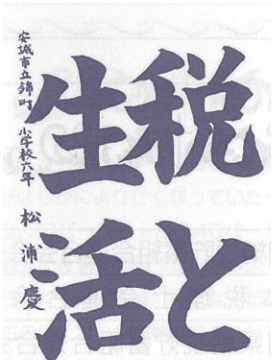 税と
生活
安城市立錦町小学校六年 松浦慶